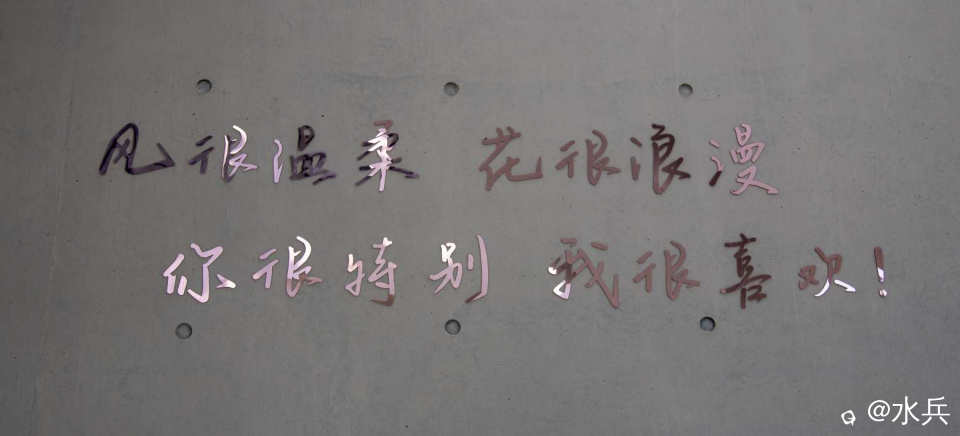 风很温柔 花很浪漫
你很特别 我很喜欢!
@水兵